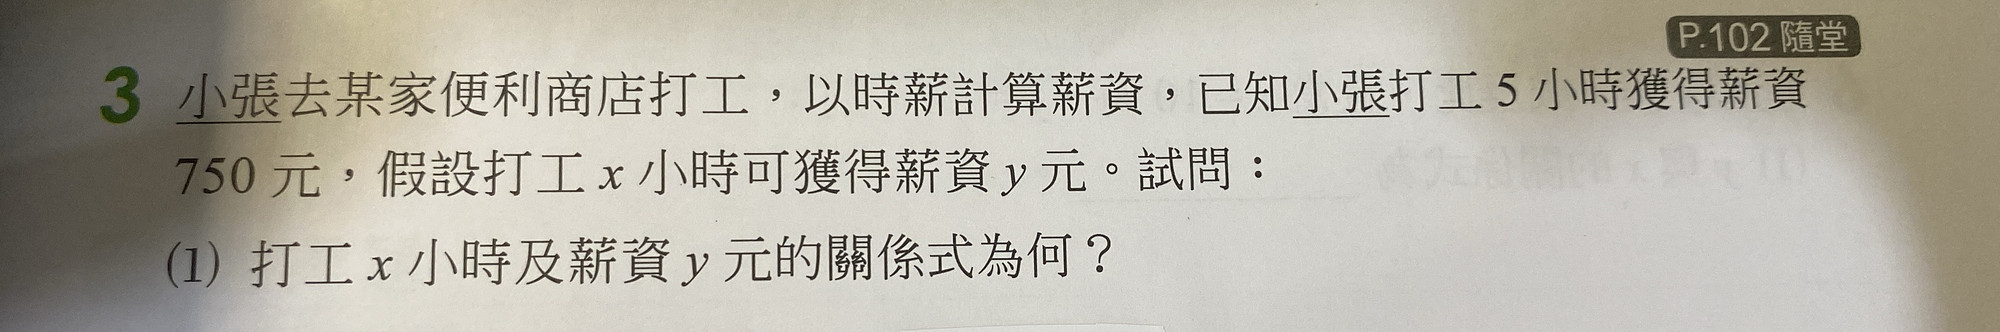 P.102 隨堂
3 小張去某家便利商店打工，以時薪計算薪資，已知小張打工 5 小時獲得薪資
750 元，假設打工 x 小時可獲得薪資 y 元。試問：
(1) 打工 x 小時及薪資 y 元的關係式為何？